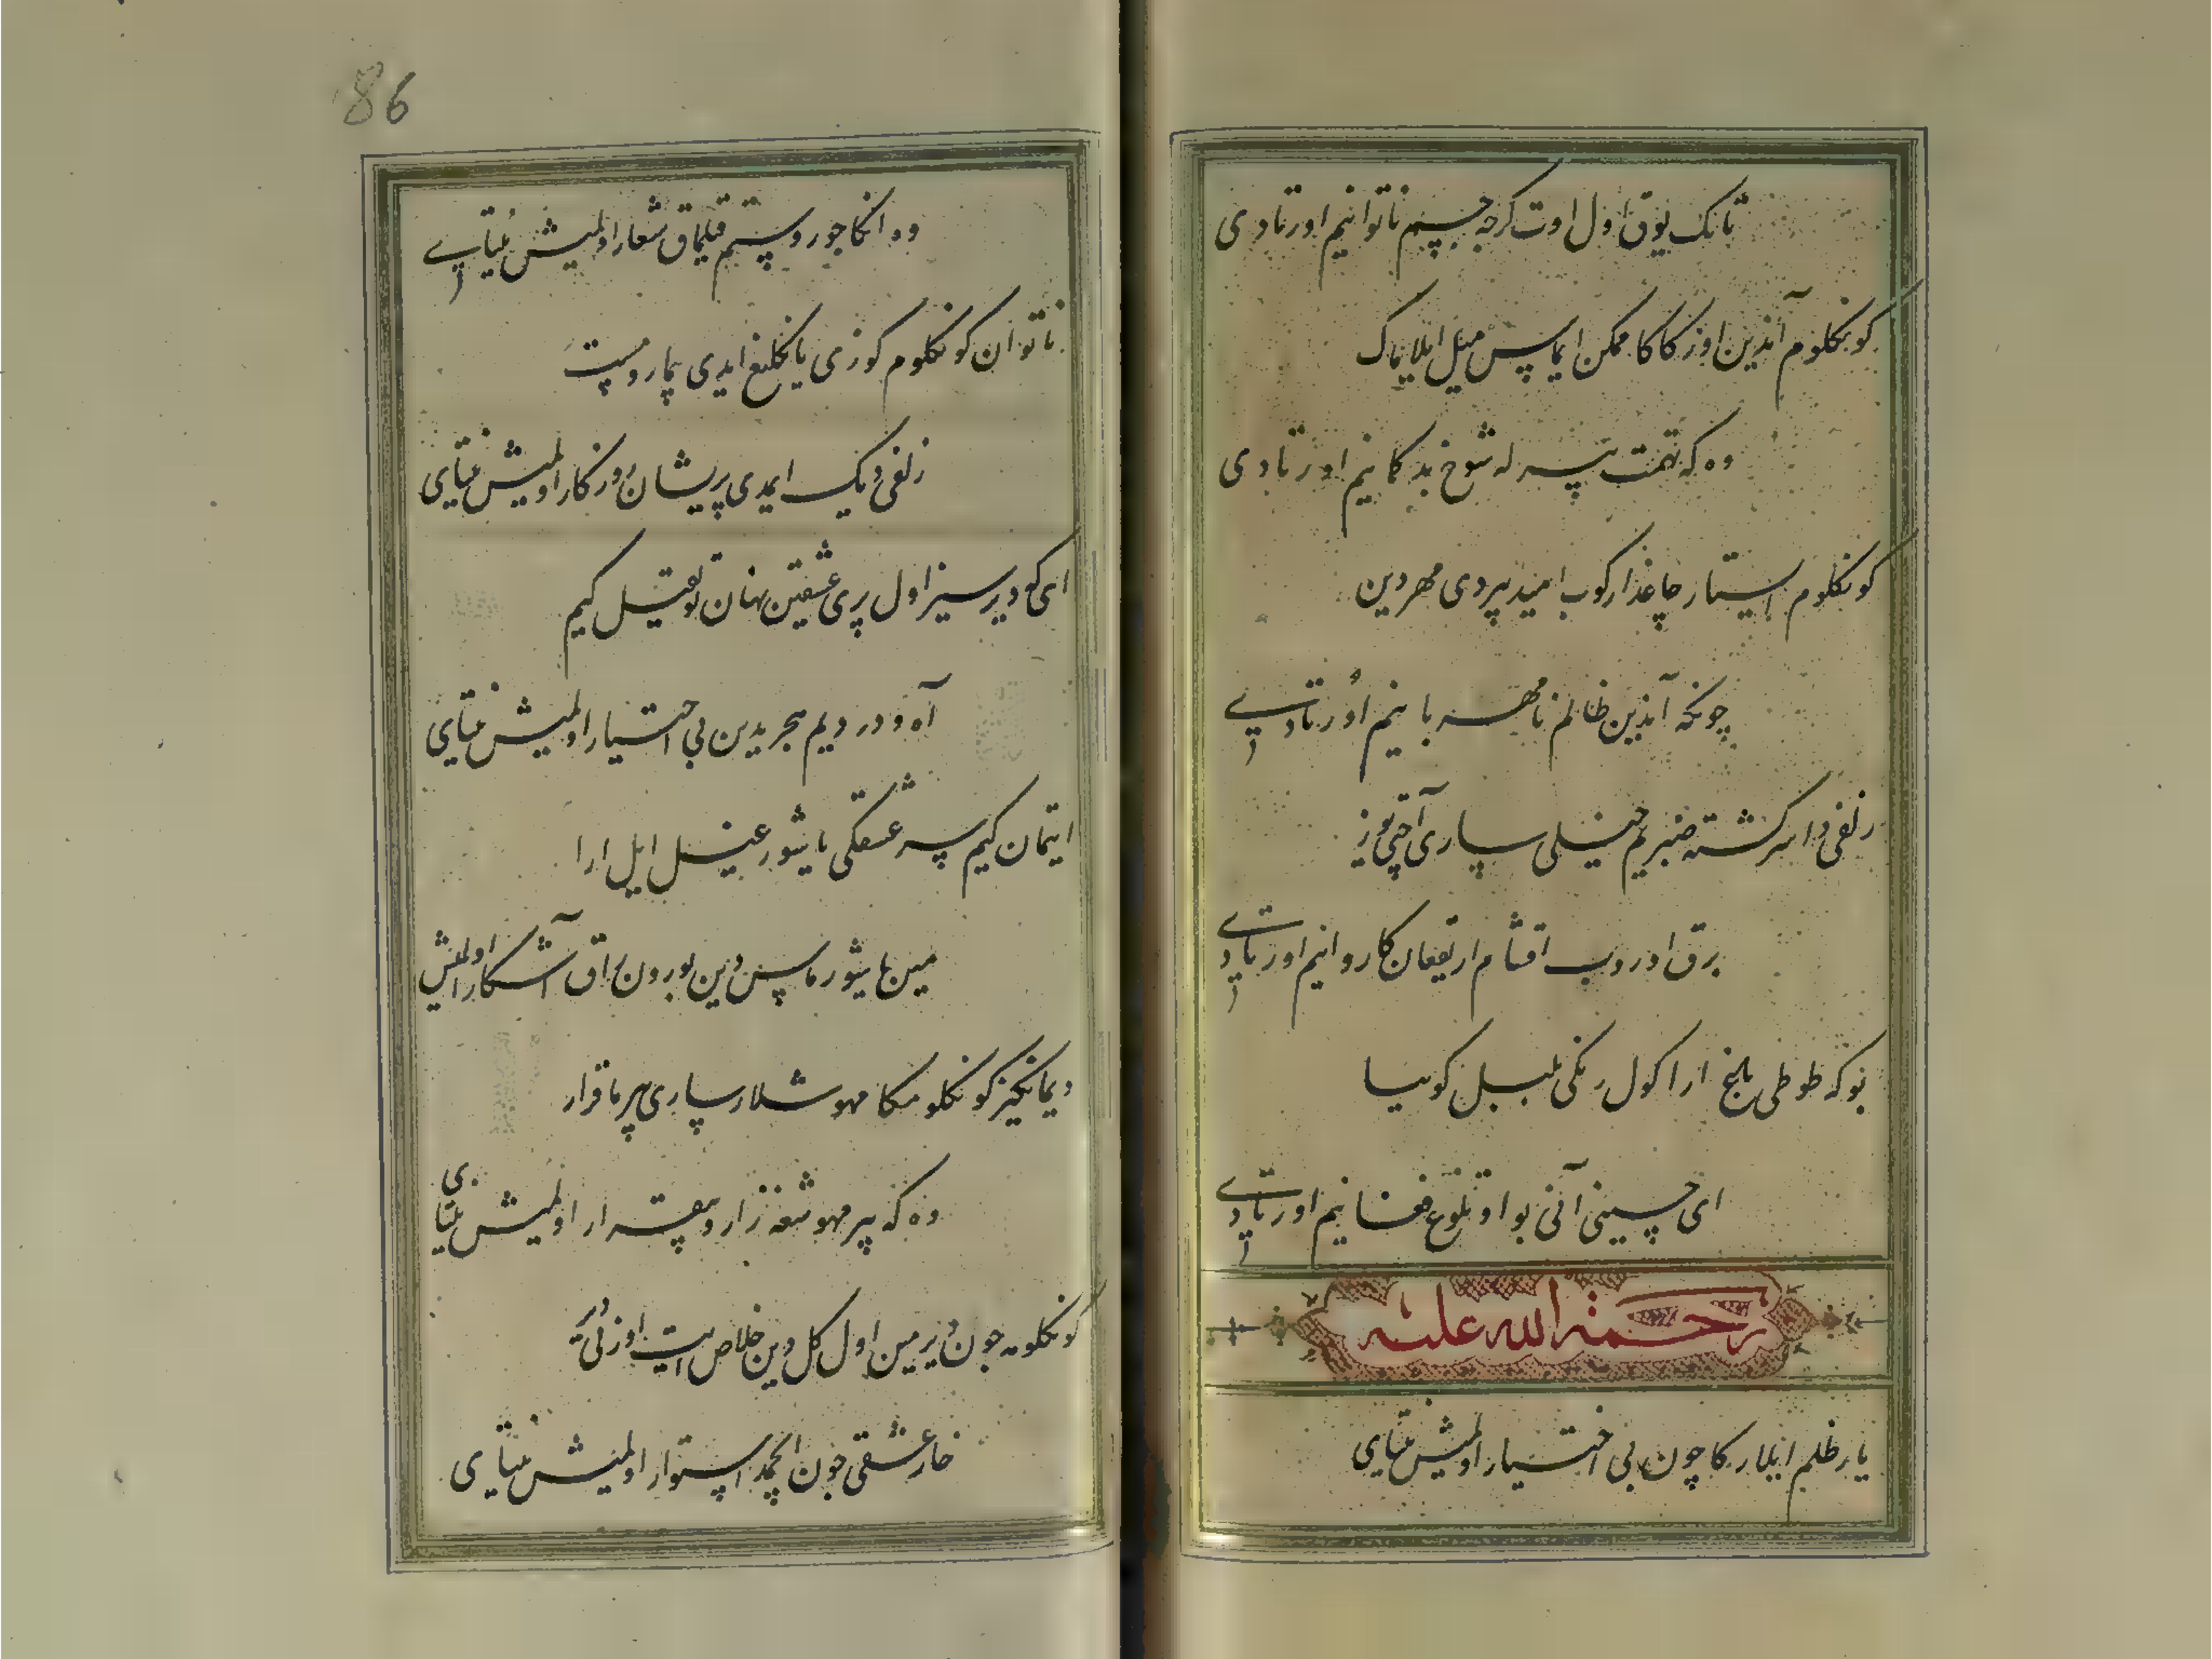 تانک یوق اول اوت کرچه جسم ناتوانیم اورتادی
کونکلوم آندین اوزکاکا ممکن ایماس میل ایلاماک
وه که تهمت بیرله شوخ بدکمانیم اورتادی
کونکلوم ایستار چاغدا کوب امید بیردی مهردین
چونکه آندین ظالم نامهربانیم اورتادی
زلفی دا سرکشته صبریم خیلی ساری آچتی یوز
برق اوروب اقشام ارتیغان کاروانیم اورتادی
بو که طوطی باغ ارا کول رنکی بلبل کویسا
ای حسینی آنی بو اوتلوغ فغانیم اورتادی
رحمة الله علیه
یار ظلم ایلارکا چون بی اختیار اولمیش نیتای
86
وه انکا جور و ستم قیلماق شعار اولمیش نیتای
ناتوان کونکلوم کوزی یانکلیغ ایدی بیمار و مست
زلفی دیک ایمدی پریشان روزکار اولمیش نیتای
ای که دیرسیز اول پری عشقین نهان توتقیل کیم
آه و دردیم هجریدین بی اختیار اولمیش نیتای
ایتمان کیم عشقنکی یاشور غیل ایل ارا
مین یاشورماسدین بورون اق آشکار اولمیش
دیمانکیز کونکلومکا مهوشلار ساری بیرما قرار
وه که بیر مهوشغه زار و بیقرار اولمیش نیتای
کونکلومه چون دیرمین اول کل دین خلاص ایت اوزنی
خار عشقی چون انجمدا استوار اولمیش نیتای